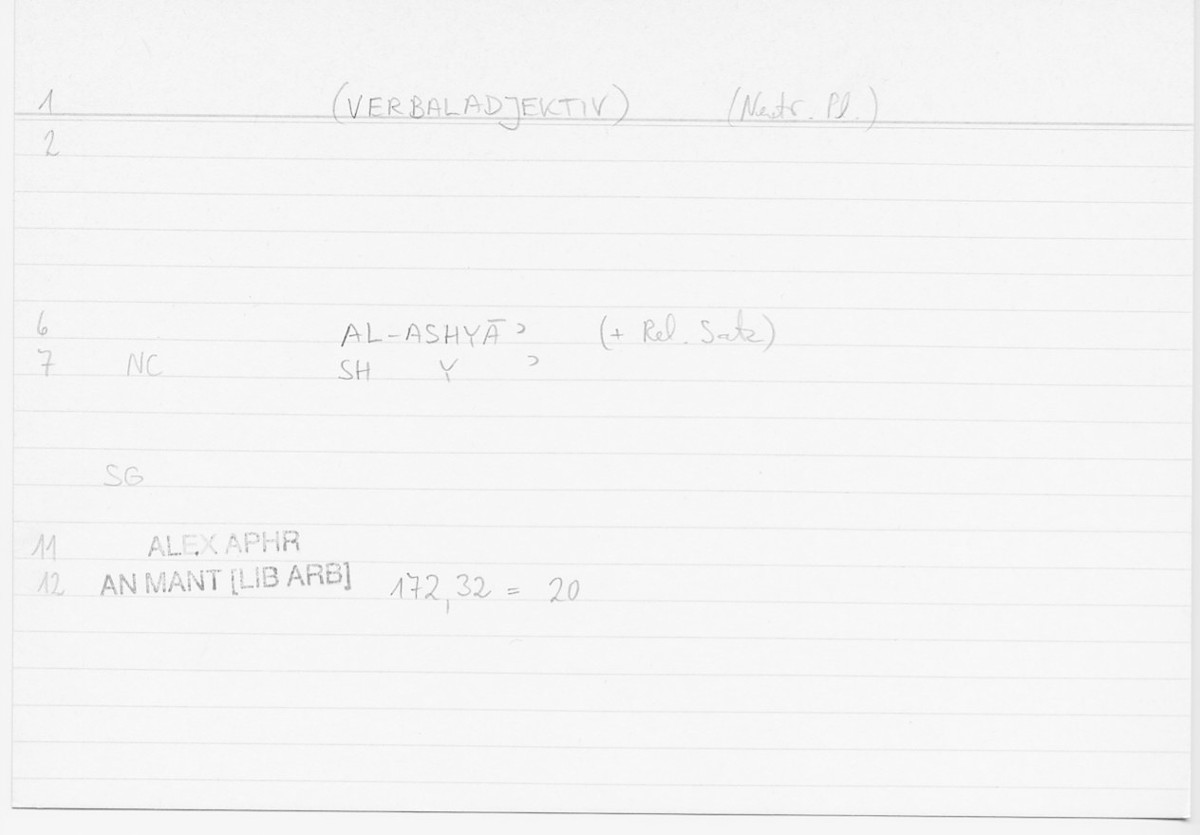 1 (VERBALADJEKTIV) (Neutr. Pl.)
2
6 AL-ASHYĀʾ (+ Rel. Satz)
7 NC SH Y ʾ
SG
11 ALEX APHR
12 AN MANT [LIB ARB] 172,32 = 20